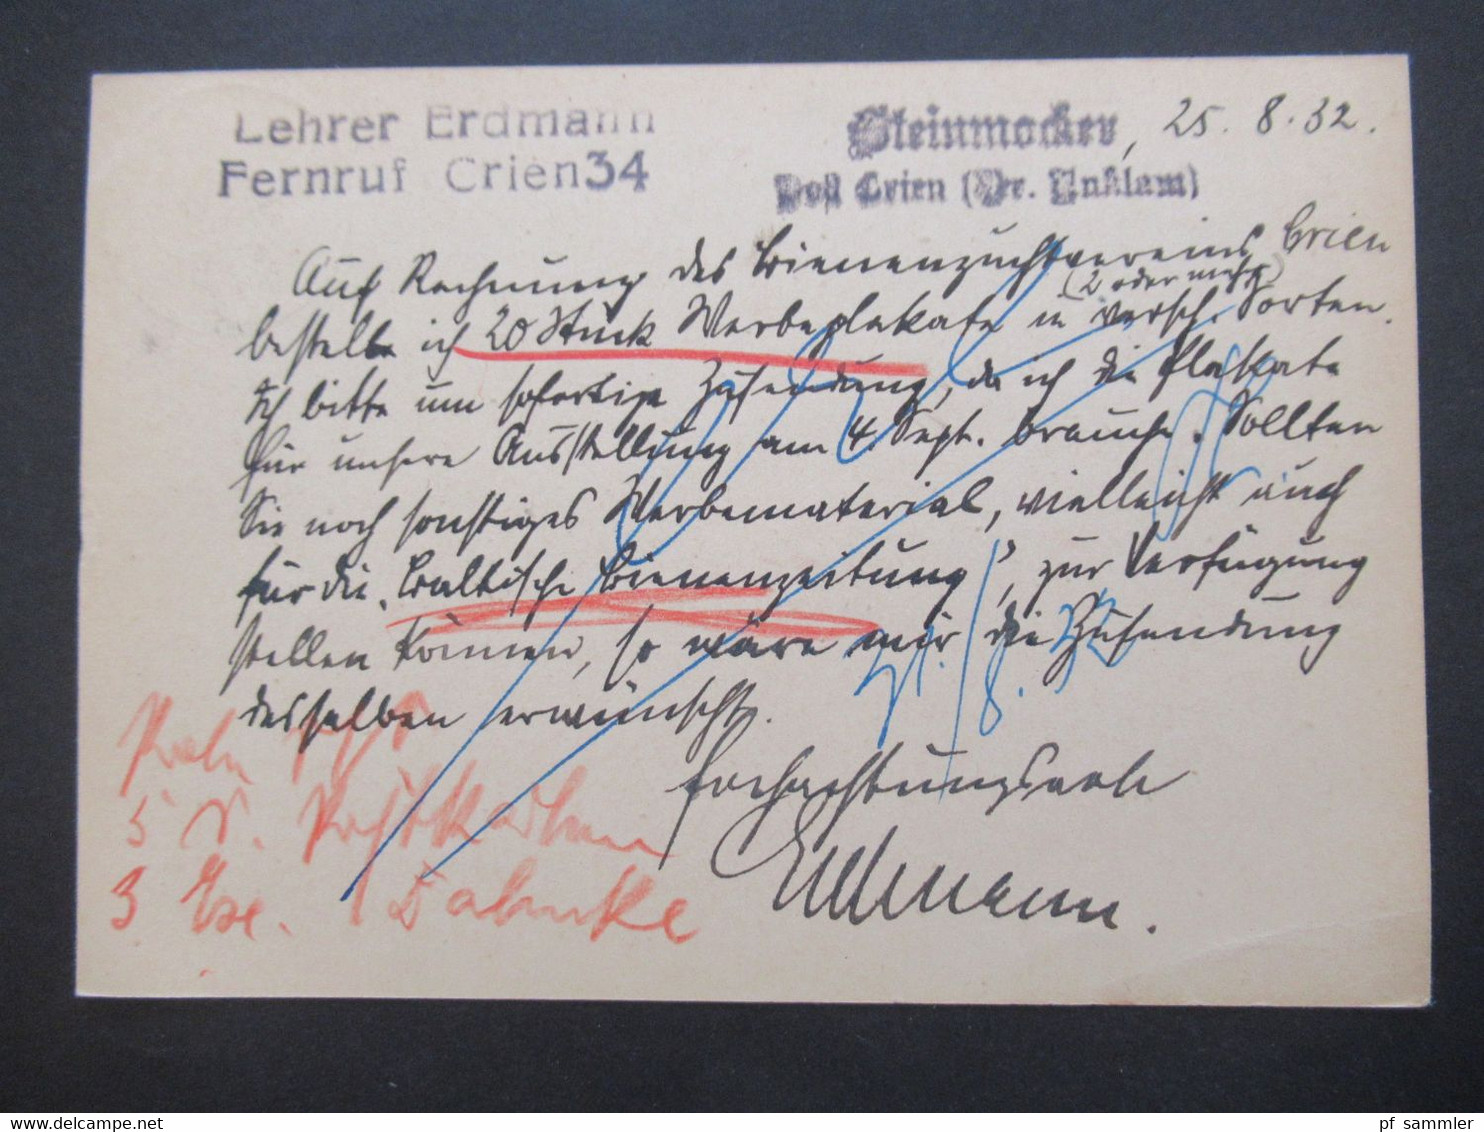 Lehrer Erdmann
Fernruf Crien 34
Steinmocker, 25. 8. 32.
Post Crien (Kr. Anklam)
Auf Rechnung des Bienenzuchtvereins Crien
(2 oder mehr)
bestelle ich 20 Stück Werbeplakate in versch. Sorten.
Ich bitte um sofortige Zusendung, da ich die Plakate
für unsere Ausstellung am 4. Sept. brauche. Sollten
Sie noch sonstiges Werbematerial, vielleicht auch
für die „Baltische Bienenzeitung", zur Verfügung
stellen können, so wäre mir die Zusendung
desselben erwünscht.
Hochachtungsvoll
Erdmann.
5 Postkarten
3 Ex. Dahnke
pf_sammler